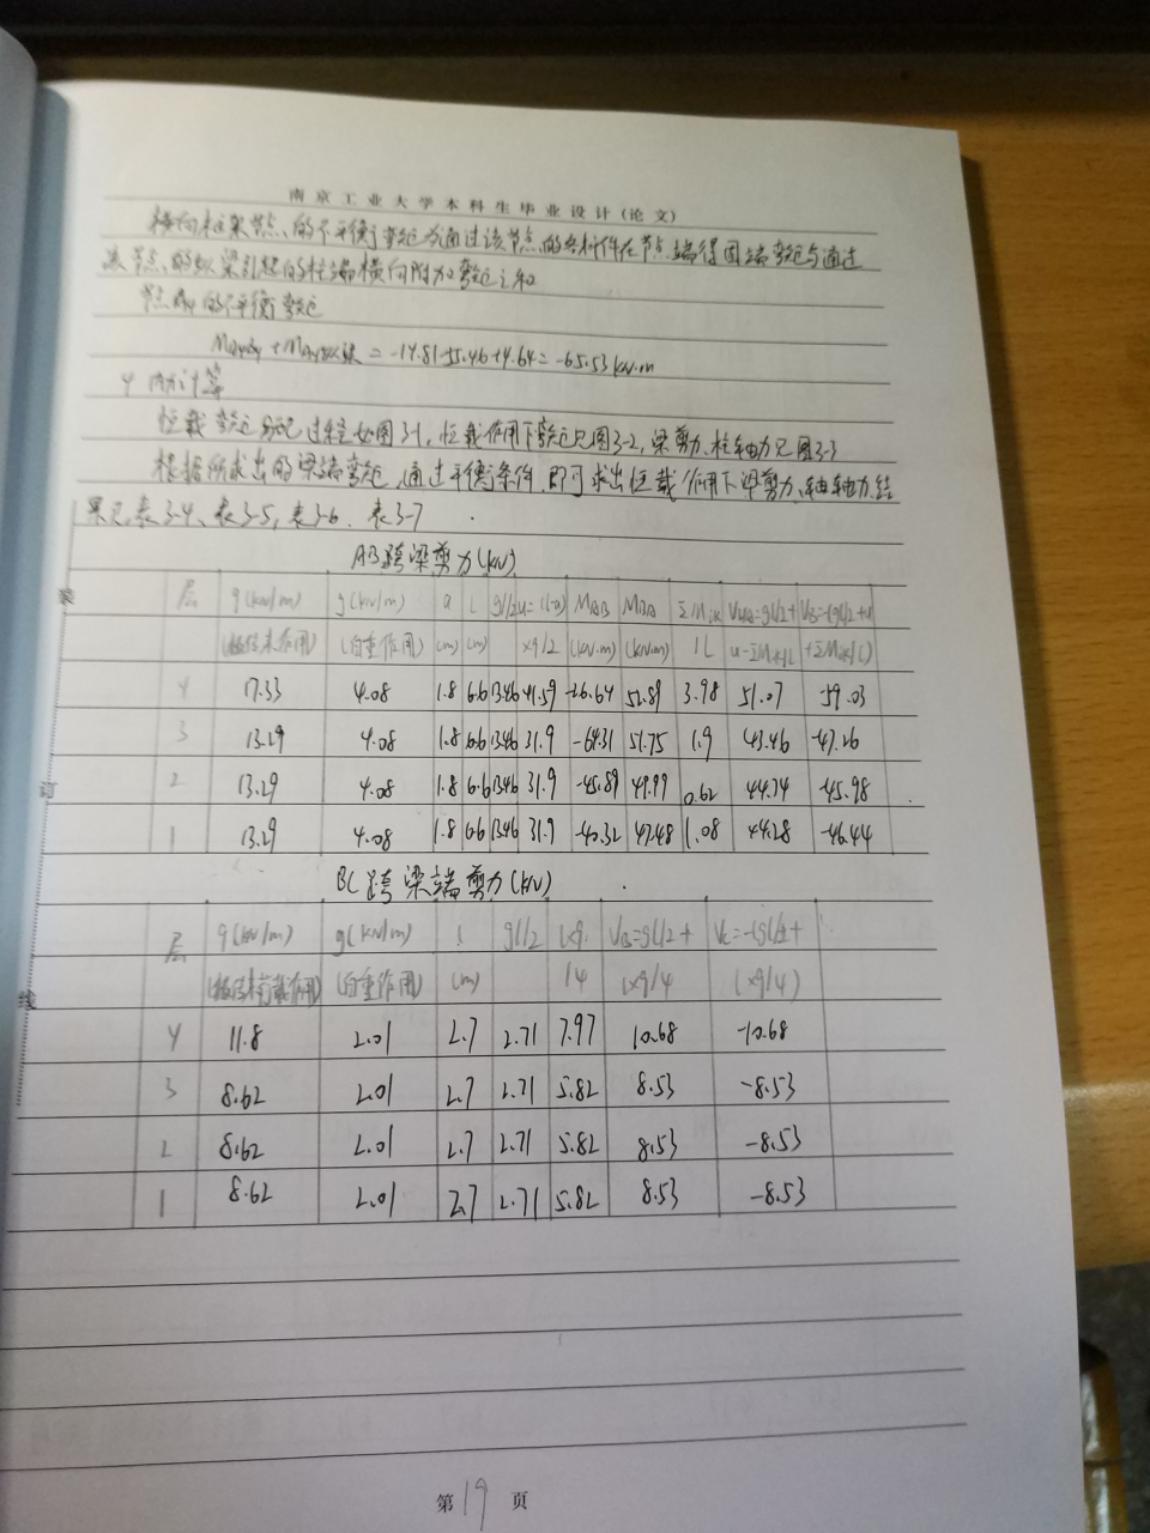 南京工业大学本科生毕业设计(论文)
横向框架节点的不平衡弯矩为通过该节点的各杆件在节点端得固端弯矩与通过
该节点的纵梁引起的柱端横向附加弯矩之和
节点 的不平衡弯矩
= -14.81-55.46+4.64= -65.53kN·m
4 内力计算
恒载弯矩分配过程如图3-1,恒载作用下弯矩见图3-2,梁剪力、柱轴力见图3-3
根据所求出的梁端弯矩,通过平衡条件,即可求出恒载作用下梁剪力、轴轴力,结
果见表3-4、表3-5,表3-6、表3-7
AB跨梁剪力(kN)
层 q(kN/m) g(kN/m) a L gl/2 u=(l-a) MAB MBA ΣMik VA=gl/2+ VB=-(gl/2+u
(板传来作用) (自重作用) (m) (m) ×q/2 (kN·m) (kN·m) /L u-ΣMik/L +ΣMik/L)
4 17.33 4.08 1.8 6.6 13.46 41.59 -26.64 52.89 3.98 51.07 -59.03
3 13.29 4.08 1.8 6.6 13.46 31.9 51.75 1.9 43.46 -47.26
2 13.29 4.08 1.8 6.6 13.46 31.9 -45.89 49.99 0.62 44.74 -45.98
1 13.29 4.08 1.8 6.6 13.46 31.9 -40.32 47.48 1.08 44.28 -46.44
BC跨梁端剪力(kN)
层 q(kN/m) g(kN/m) l gl/2 lxq VB=gl/2+ VC=-(gl/2+
(板传来荷载作用) (自重作用) (m) /4 lxq/4 lxq/4)
4 11.8 2.01 2.7 2.71 7.97 10.68 -10.68
3 8.62 2.01 2.7 2.71 5.82 8.53 -8.53
2 8.62 2.01 2.7 2.71 5.82 8.53 -8.53
1 8.62 2.01 2.7 2.71 5.82 8.53 -8.53
装
订
线
第19页